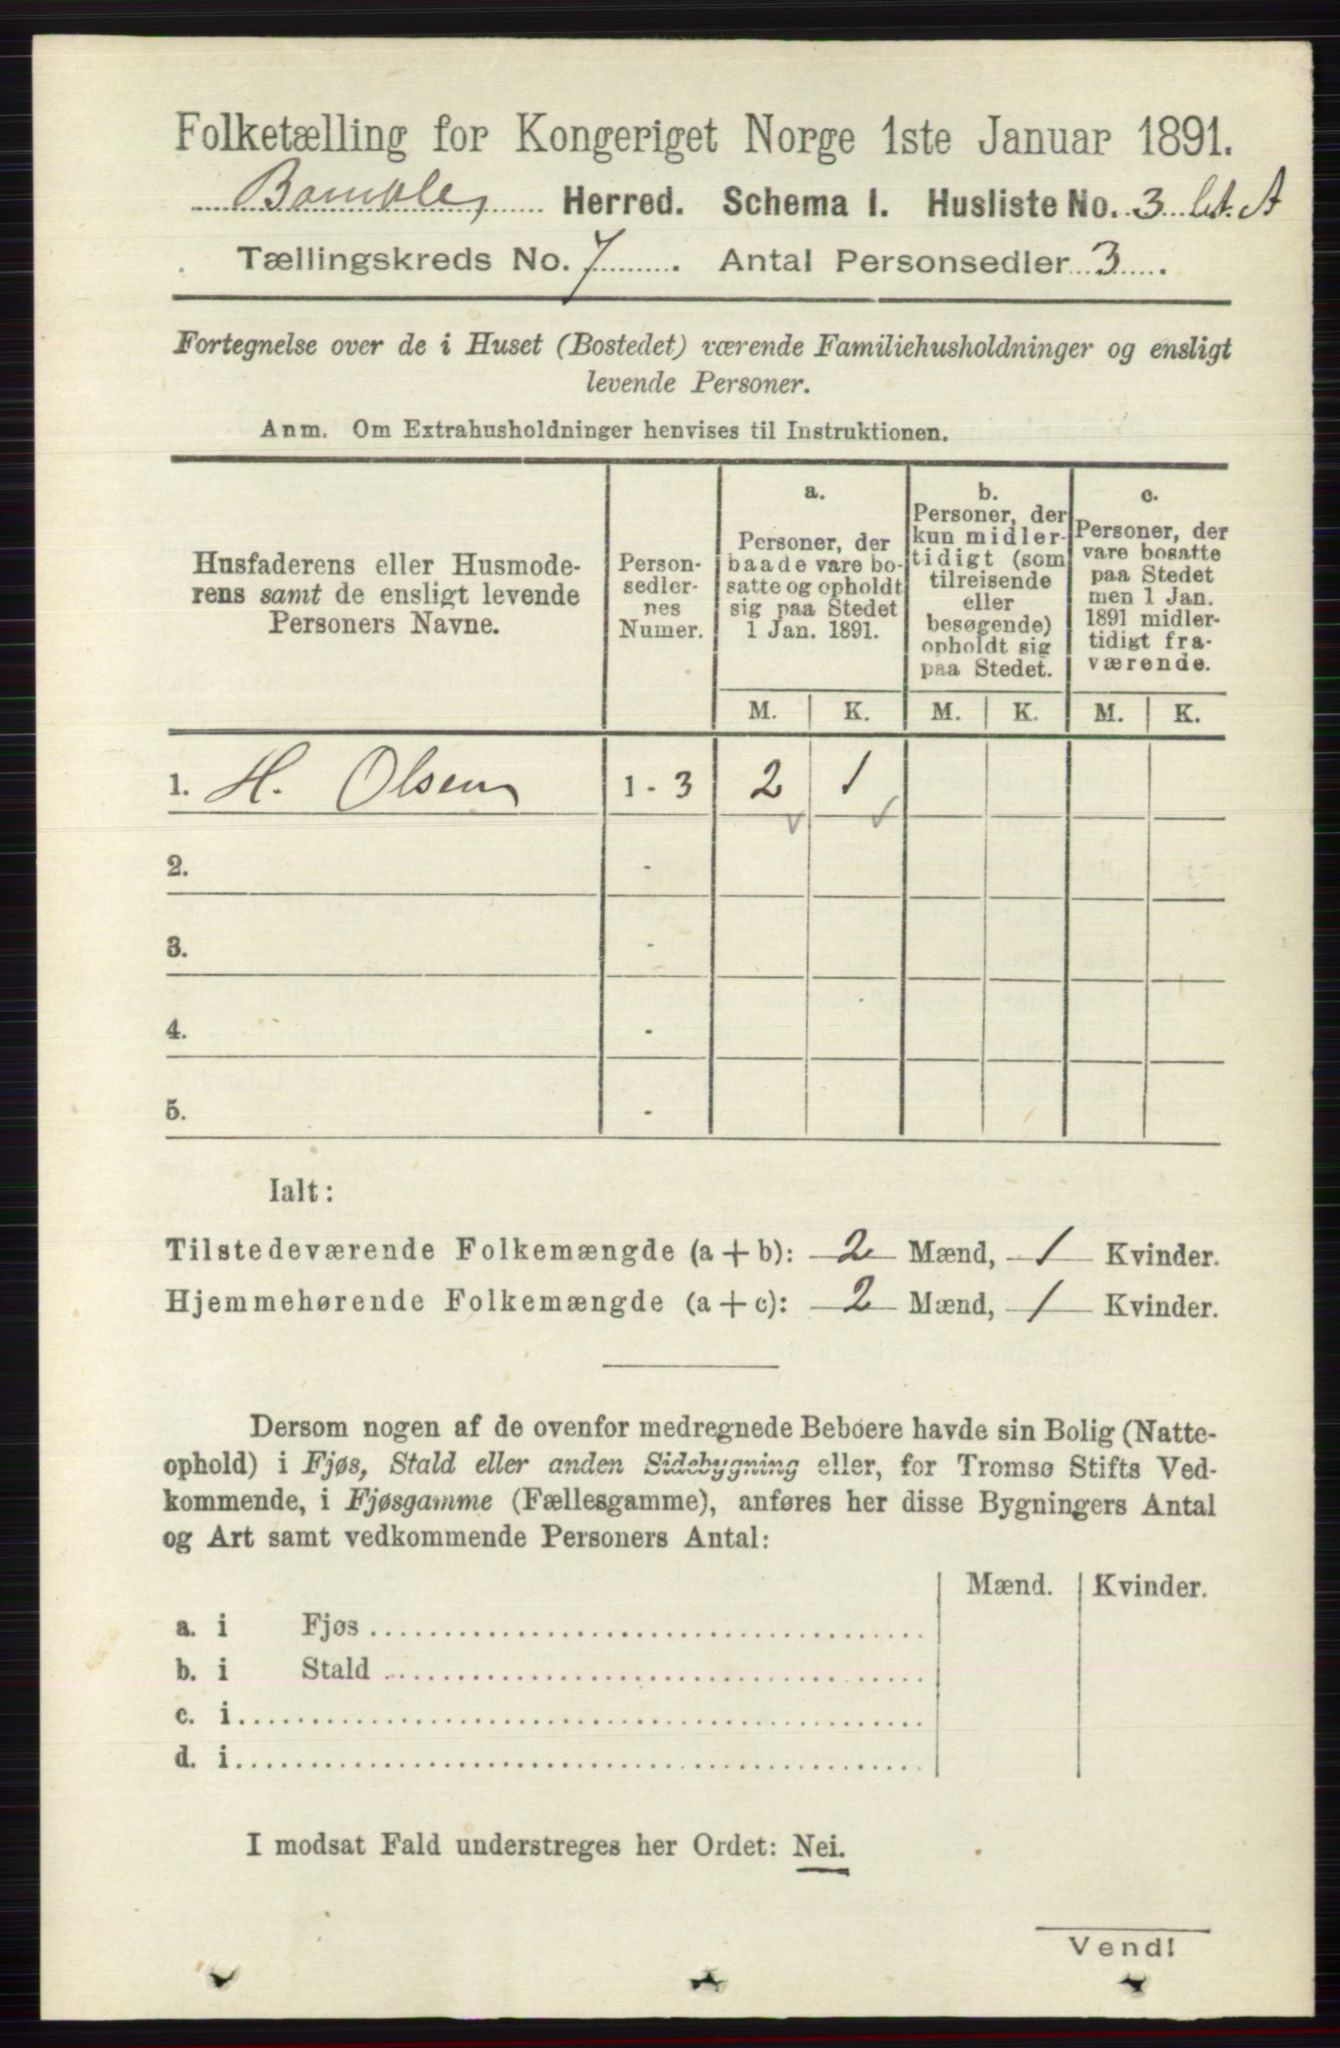 Folketælling for Kongeriget Norge 1ste Januar 1891.
Bamble, Herred. Schema I. Husliste No. 3 Lit. A
Tællingskreds No. 7. Antal Personsedler 3.
Fortegnelse over de i Huset (Bostedet) værende Familiehusholdninger og ensligt
levende Personer.
Anm. Om Extrahusholdninger henvises til Instruktionen.
Husfaderens eller Husmode-
rens samt de ensligt levende
Personers Navne.
Person-
sedler-
nes
Numer.
a.
Personer, der
baade vare bo-
satte og opholdt
sig paa Stedet
1 Jan. 1891.
b.
Personer, der
kun midler-
tidigt (som
tilreisende
eller
besøgende)
opholdt sig
paa Stedet.
c.
Personer, der
vare bosatte
paa Stedet
men 1 Jan.
1891 midler-
tidigt fra-
værende.
M. K. M. K. M. K.
1. H. Olsen 1 - 3 2 1
2. -
3. -
4. -
5. -
Ialt:
Tilstedeværende Folkemængde (a + b): 2 Mænd, 1 Kvinder.
Hjemmehørende Folkemængde (a + c): 2 Mænd, 1 Kvinder.
Dersom nogen af de ovenfor medregnede Beboere havde sin Bolig (Natte-
ophold) i Fjøs, Stald eller anden Sidebygning eller, for Tromsø Stifts Ved-
kommende, i Fjøsgamme (Fællesgamme), anføres her disse Bygningers Antal
og Art samt vedkommende Personers Antal:
Mænd. Kvinder.
a. i Fjøs
b. i Stald
c. i
d. i
I modsat Fald understreges her Ordet: Nei.
Vend!